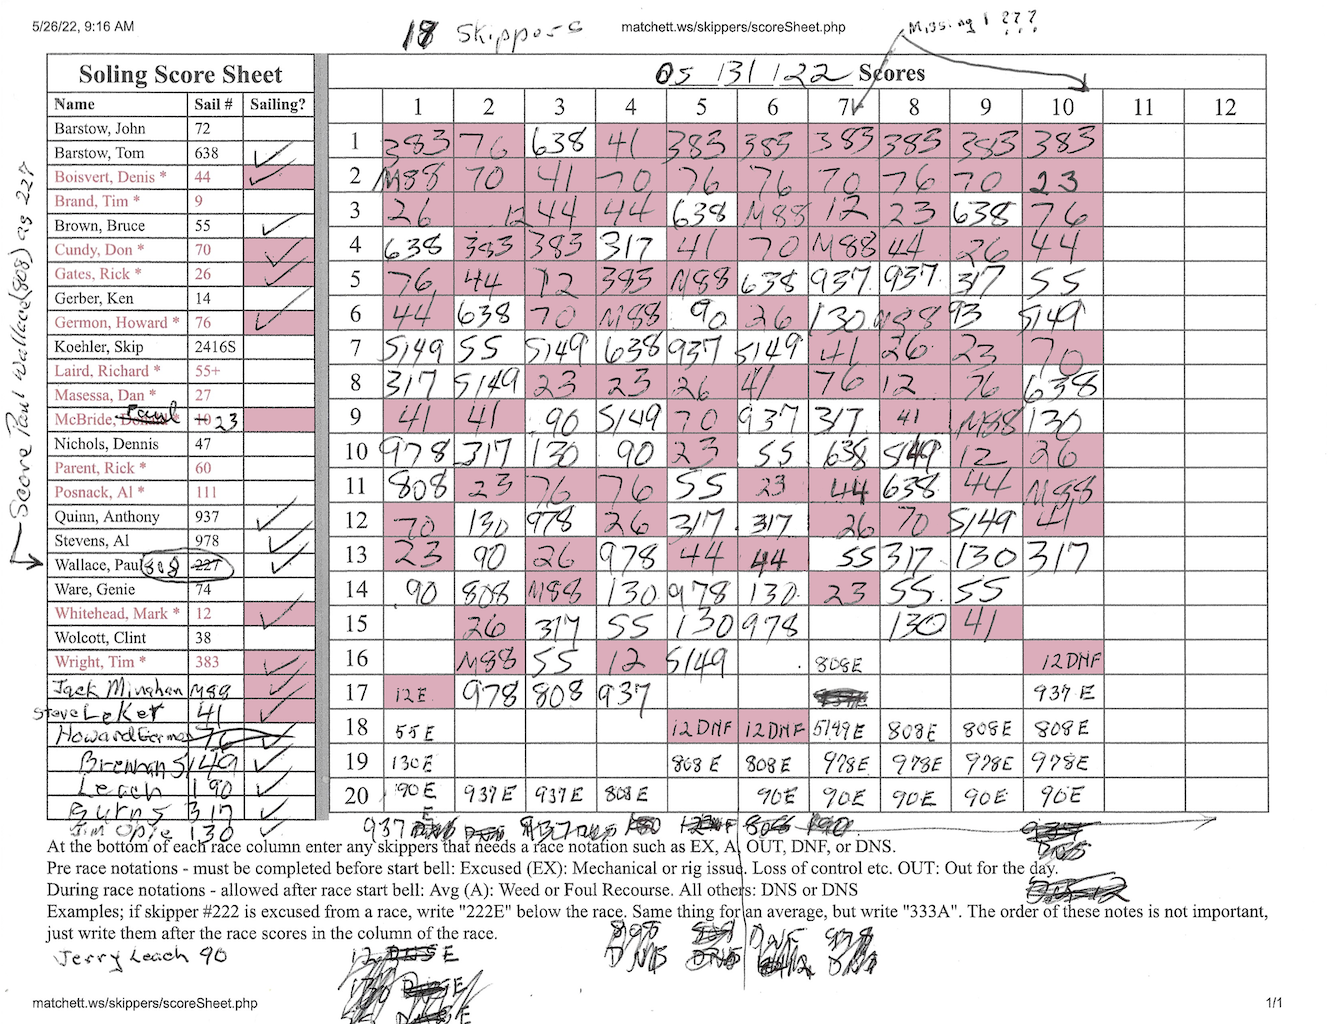 5/26/22, 9:16 AM
18 Skippers
matchett.ws/skippers/scoreSheet.php
Missing 1 ???
Soling Score Sheet
05/31/22 Scores
Name Sail # Sailing?
1 2 3 4 5 6 7 8 9 10 11 12
Barstow, John 72
Barstow, Tom 638
Boisvert, Denis * 44
Brand, Tim * 9
Brown, Bruce 55
Cundy, Don * 70
Gates, Rick * 26
Gerber, Ken 14
Germon, Howard * 76
Koehler, Skip 2416S
Laird, Richard * 55+
Masessa, Dan * 27
McBride, Paul 10 23
Nichols, Dennis 47
Parent, Rick * 60
Posnack, Al * 111
Quinn, Anthony 937
Stevens, Al 978
Wallace, Paul 808 227
Ware, Genie 74
Whitehead, Mark * 12
Wolcott, Clint 38
Wright, Tim * 383
Jack Minahan M88
Steve LeKet 41
Howard Germon 76
Brennan 5149
Leach 190
Burns 317
Jim Opie 130
Score Paul Wallace (808) as 227
1 383 76 638 41 383 383 383 383 383 383
2 M88 70 41 70 76 76 70 76 70 23
3 26 12 44 44 638 M88 12 23 638 76
4 638 383 383 317 41 70 M88 44 26 44
5 76 44 12 383 M88 638 937 937 317 55
6 44 638 70 M88 90 26 130 M88 93 5149
7 5149 55 5149 638 937 5149 41 26 23 70
8 317 5149 23 23 26 41 76 12 76 638
9 41 41 90 5149 70 937 317 41 M88 130
10 978 317 130 90 23 55 638 5149 12 26
11 808 23 76 76 55 23 44 638 44 M88
12 70 130 978 26 317 317 26 70 5149 41
13 23 90 26 978 44 44 55 317 130 317
14 90 808 M88 130 978 130 23 55 55
15 26 317 55 130 978 130 41
16 M88 55 12 5149 808E 12DNF
17 12E 978 808 937 937 E
18 55E 12DNF 12DNF 5149E 808E 808E 808E
19 130E 808E 808E 978E 978E 978E 978E
20 90E 937E 937E 808E 90E 90E 90E 90E 90E
937 937
At the bottom of each race column enter any skippers that needs a race notation such as EX, A, OUT, DNF, or DNS.
Pre race notations - must be completed before start bell: Excused (EX): Mechanical or rig issue. Loss of control etc. OUT: Out for the day.
During race notations - allowed after race start bell: Avg (A): Weed or Foul Recourse. All others: DNS or DNS
Examples; if skipper #222 is excused from a race, write "222E" below the race. Same thing for an average, but write "333A". The order of these notes is not important,
just write them after the race scores in the column of the race.
Jerry Leach 90
12 E
matchett.ws/skippers/scoreSheet.php
1/1